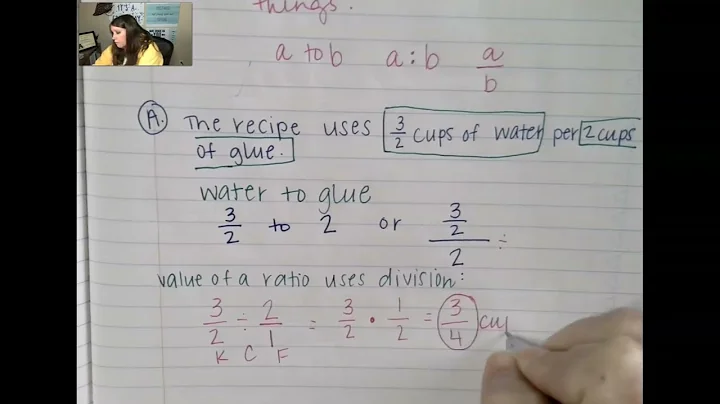 things.
a to b a : b a/b
A. The recipe uses 3/2 cups of water per 2 cups
of glue.
water to glue
3/2 to 2 or 3/2/2 ÷
value of a ratio uses division:
3/2 ÷ 2/1 = 3/2 • 1/2 = 3/4 cup
K C F